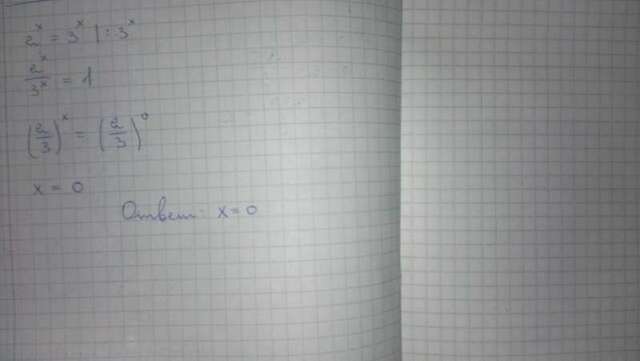 2ˣ = 3ˣ | : 3ˣ
2ˣ/3ˣ = 1
(2/3)ˣ = (2/3)⁰
x = 0
Ответ: x = 0